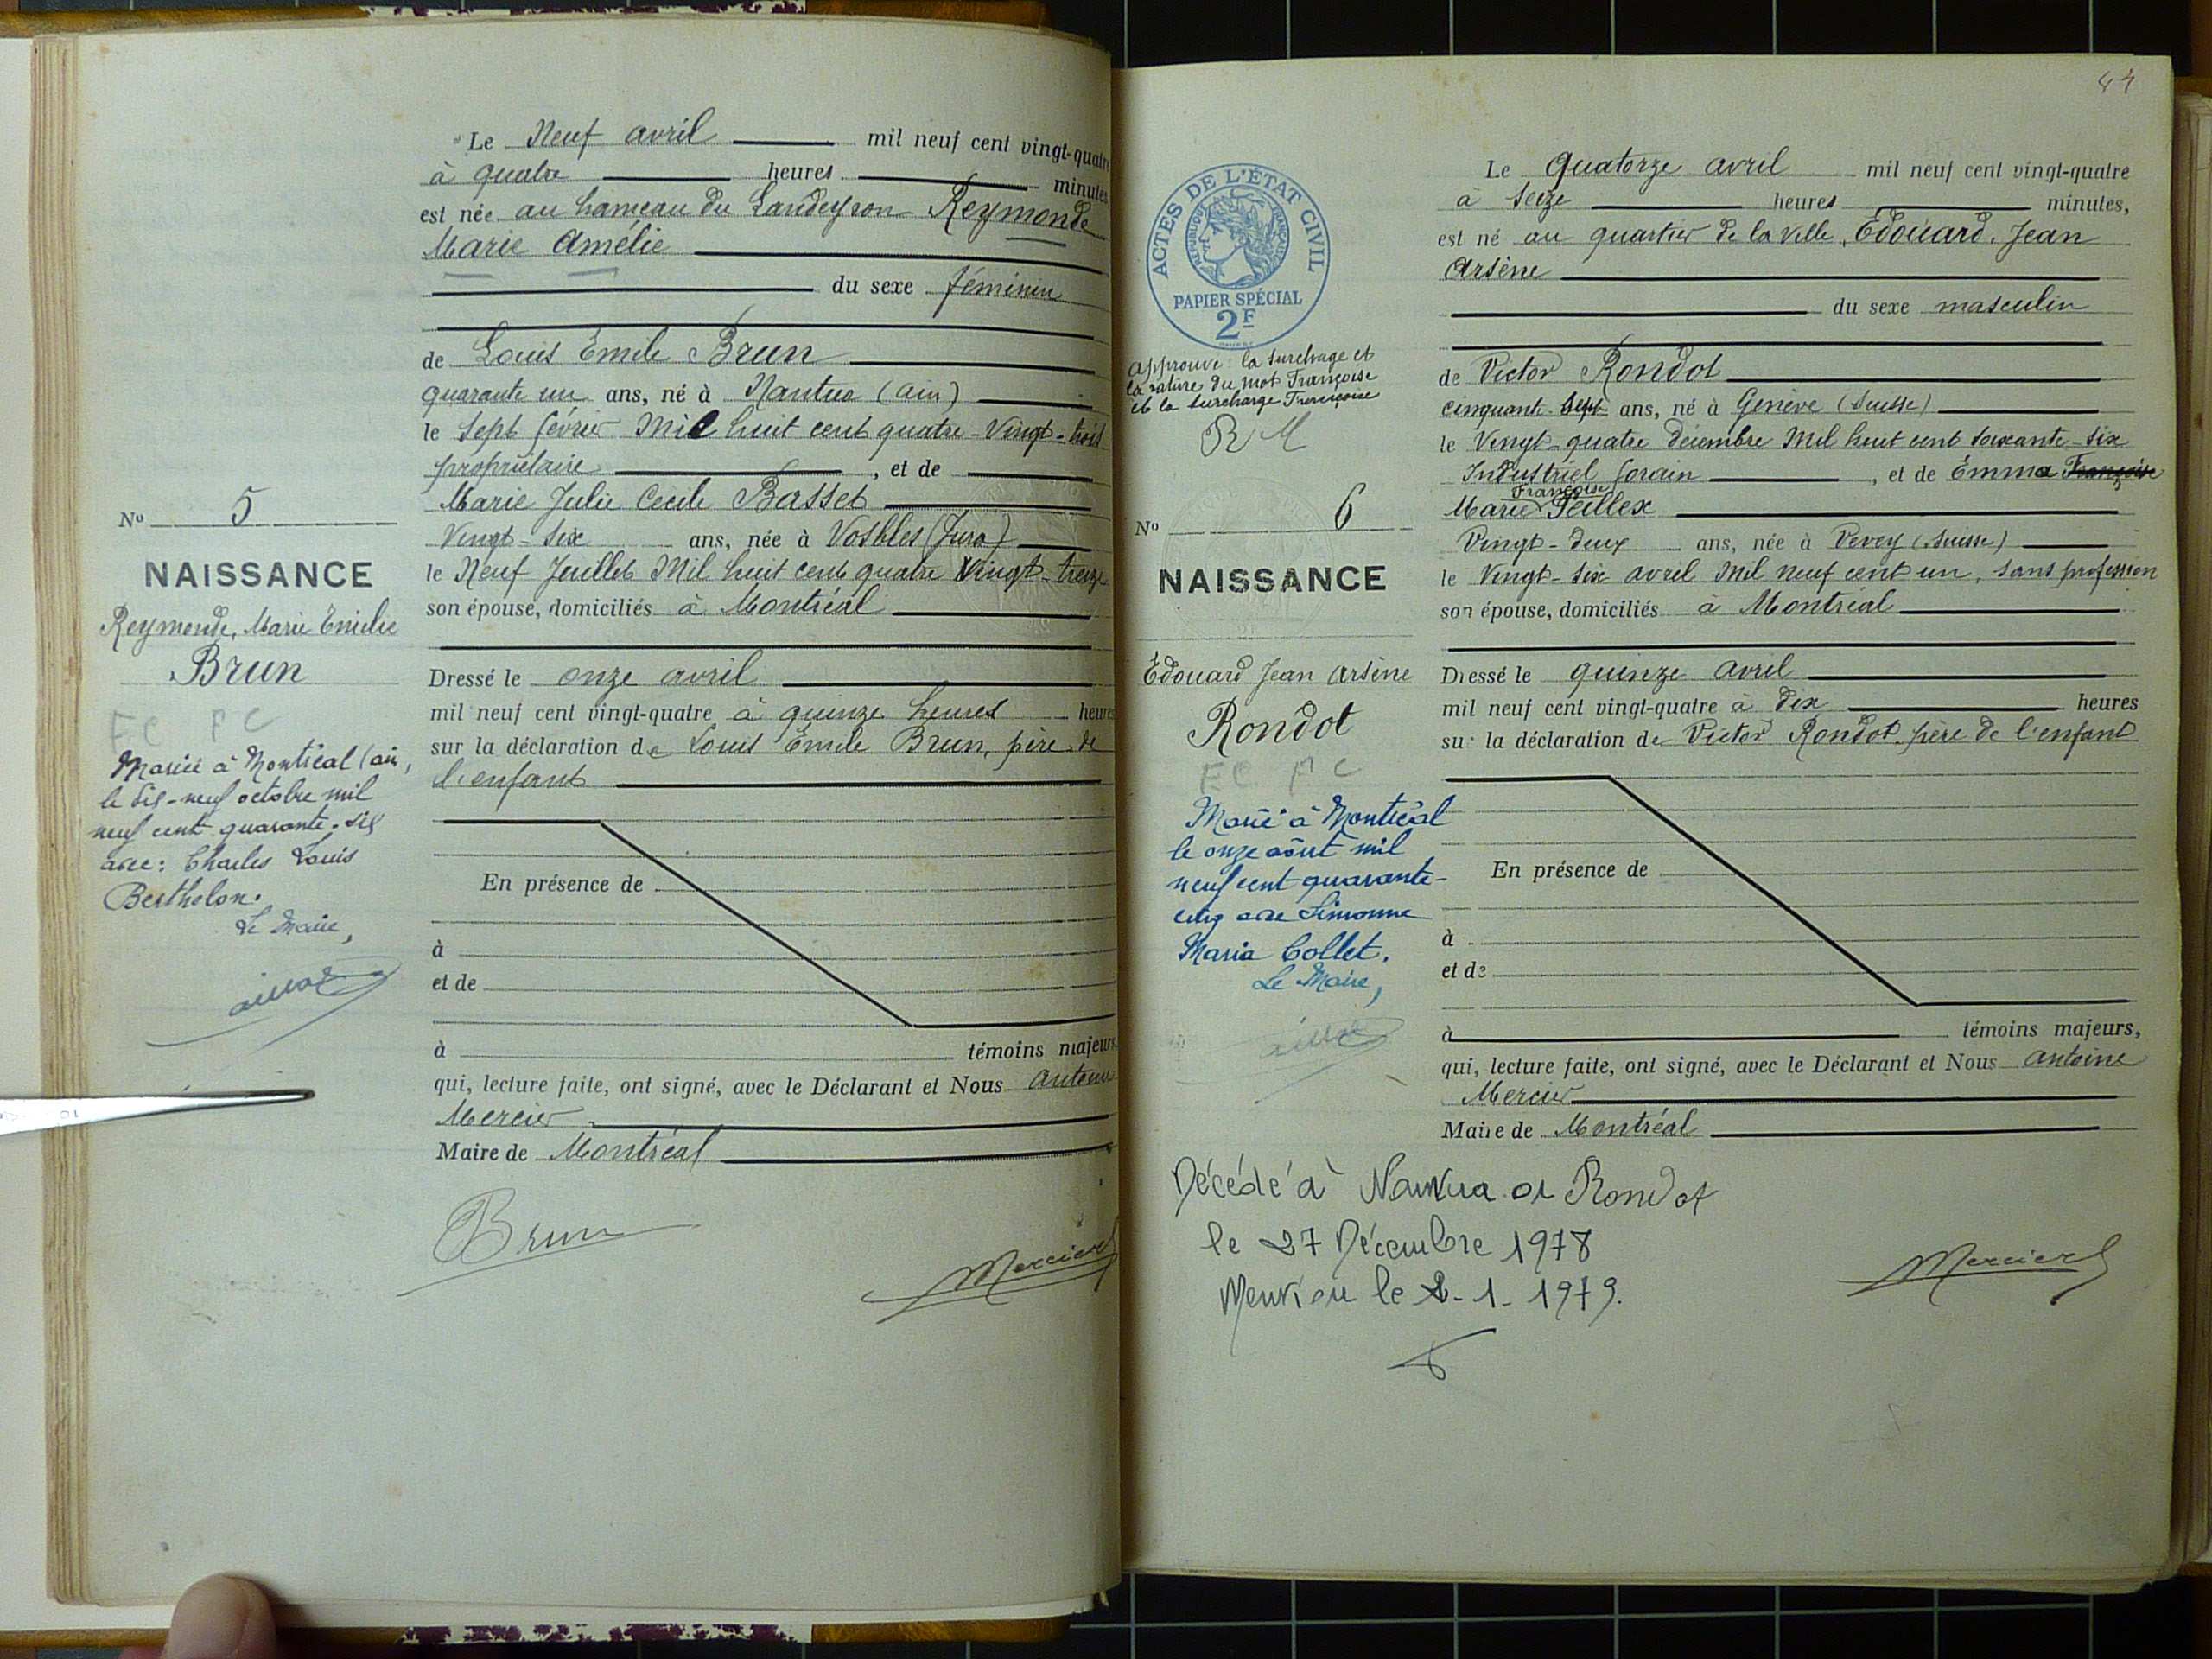 Le Neuf avril mil neuf cent vingt-quatre
à quatre heures minutes
est née au hameau du Landeyron Reymonde
Marie Amélie
du sexe féminin
de Louis Émile Brun
quarante un ans, né à Nantua (Ain)
le Sept février Mil huit cent quatre-Vingt-trois
propriétaire, et de
Marie Julie Cécile Basset
Vingt-six ans, née à Vosbles (Jura)
le Neuf Juillet Mil huit cent quatre Vingt-treize
son épouse, domiciliés à Montréal
Dressé le onze avril
mil neuf cent vingt-quatre à quinze heures heures
sur la déclaration de Louis Émile Brun, père de
l'enfant
En présence de
à
et de
à témoins majeurs,
qui, lecture faite, ont signé, avec le Déclarant et Nous Antoine
Mercier
Maire de Montréal
Brun
Mercier
No 5
NAISSANCE
Reymonde, Marie Émilie
Brun
EC PC
Mariée à Montréal (ain,
le dix-neuf octobre mil
neuf cent quarante-six
avec: Charles Louis
Berthelon.
Le Maire,
44
ACTES DE L'ÉTAT CIVIL
RÉPUBLIQUE FRANÇAISE
PAPIER SPÉCIAL
2F
Approuvé: la surchage et
la rature du mot Françoise
et la surcharge Françoise
R M
No 6
NAISSANCE
Édouard Jean Arsène
Rondot
EC PC
Marié à Montréal
le onze août mil
neuf cent quarante-
cinq avec Simonne
Maria Collet.
Le Maire,
Le Quatorze avril mil neuf cent vingt-quatre
à Seize heures minutes,
est né au quartier de la ville, Édouard, Jean
Arsène
du sexe masculin
de Victor Rondot
cinquant-sept ans, né à Genève (Suisse)
le Vingt-quatre décembre Mil huit cent soixante-six
Industriel forain, et de Émma Françoise
Françoise
Marie Peillex
Vingt-deux ans, née à Vevey (Suisse)
le Vingt-six avril Mil neuf cent un, sans profession
son épouse, domiciliés à Montréal
Dressé le quinze avril
mil neuf cent vingt-quatre à dix heures
sur la déclaration de Victor Rondot père de l'enfant
En présence de
à
et de
à témoins majeurs,
qui, lecture faite, ont signé, avec le Déclarant et Nous Antoine
Mercier
Maire de Montréal
Décédé à Nantua Rondot
le 27 Décembre 1978
Mention le 2-1-1979.
Mercier